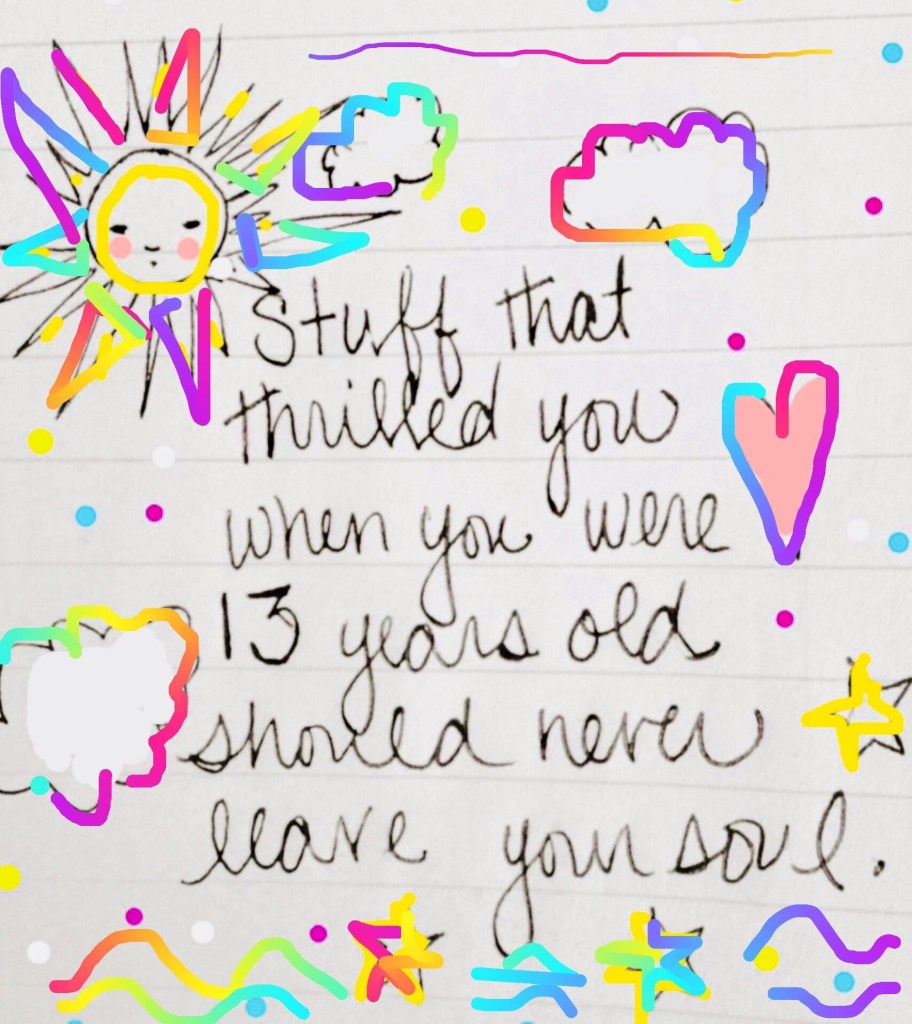 Stuff that
thrilled you
when you were
13 years old
should never
leave your soul.